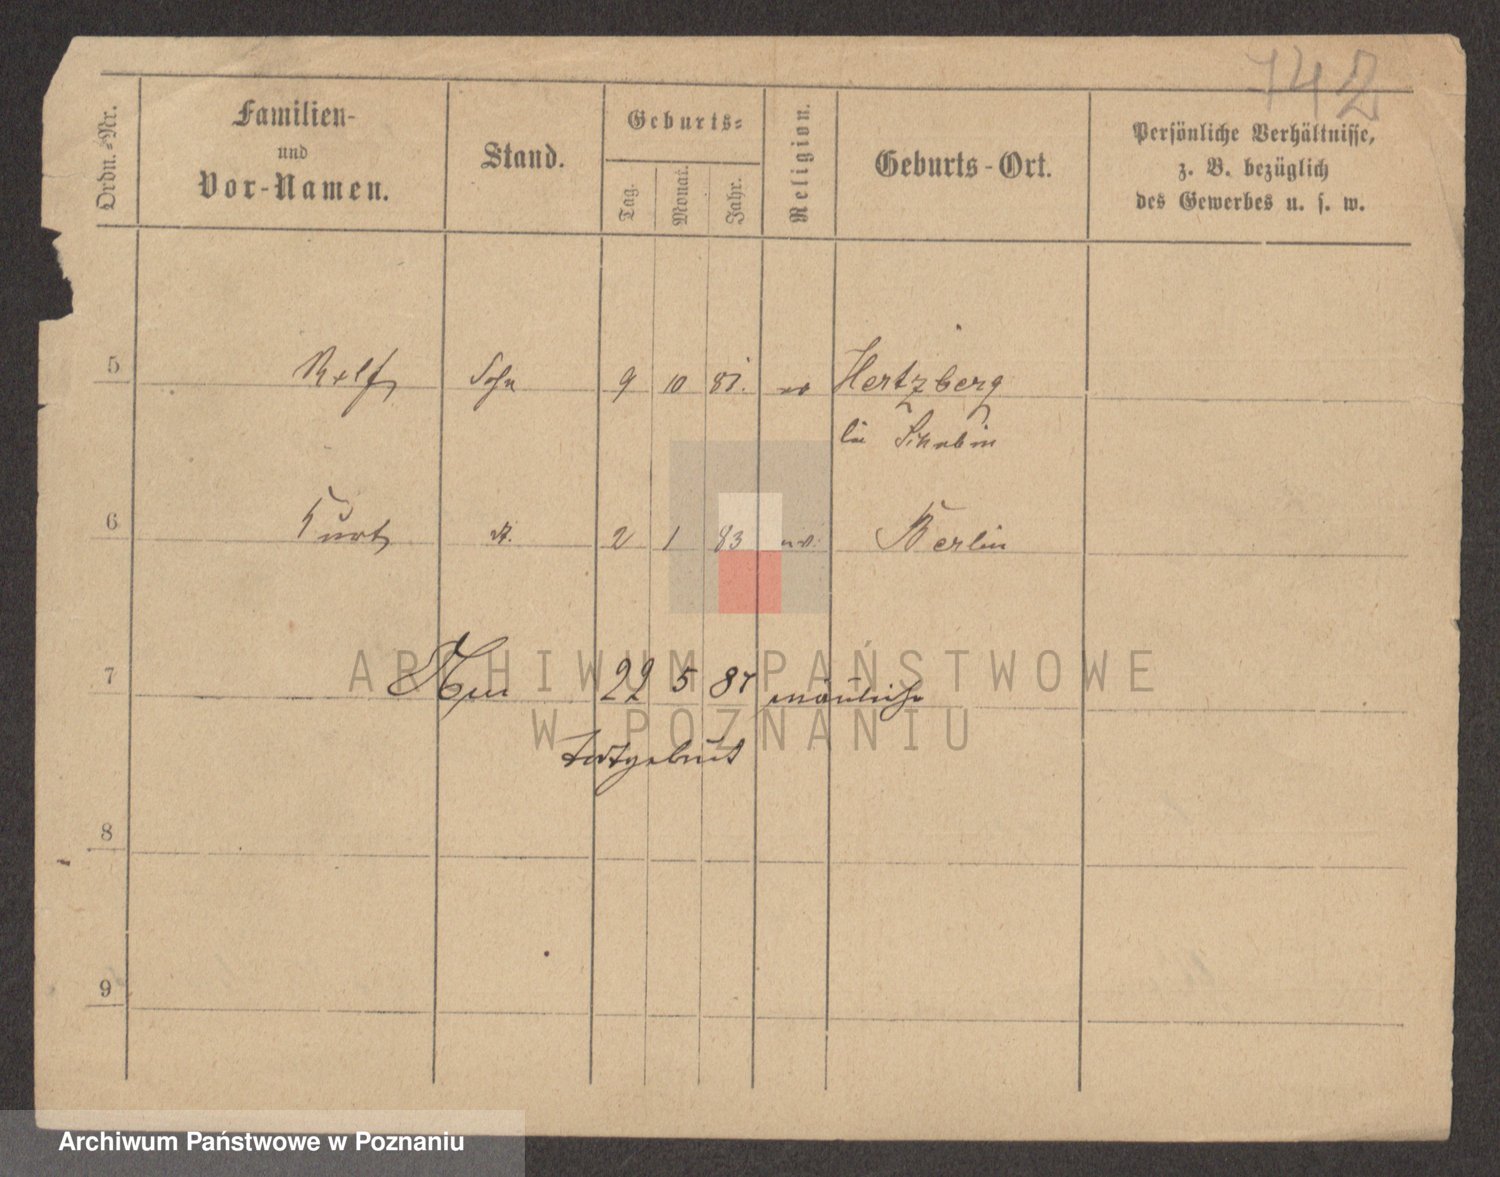 142
Ordn.-Nr. Familien- und Vor-Namen. Stand. Geburts- Tag. Monat. Jahr. Religion. Geburts-Ort. Persönliche Verhältnisse, z. B. bezüglich des Gewerbes u. s. w.
5 Rolf Sohn 9 10 81. ev Hertzberg
bei Schubin
6 Kurt 2 1 83 Berlin
7 22 5 87 männliche
todtgeburt
8
9
ARCHIWUM PAŃSTWOWE
W POZNANIU
Archiwum Państwowe w Poznaniu